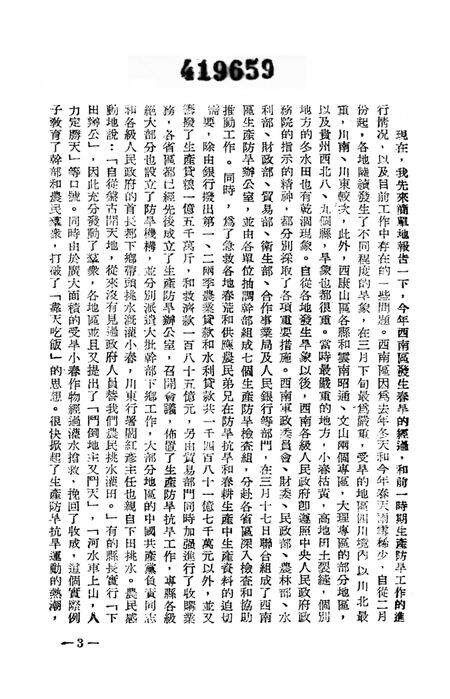 419659
現在，我先來簡單地報告一下，今年西南區發生春旱的經過，和前一時期生產防旱工作的進
行情况，以及目前工作中存在的一些問題。西南區因爲去年冬天和今年春天雨雪稀少，自從二月
份起，各地陸續發生了不同程度的旱象，在三月下旬最爲嚴重，受旱的地區四川境內以川北最
重，川南、川東較次，此外，西康山區各縣和雲南昭通、文山兩個專區，大理專區的部分地區，
以及貴州西北八、九個縣，旱象也都很重。當時最嚴重的地方，小春枯黄，高地田土裂縫，個別
地方的冬水田也有乾涸現象。自從各地發生旱象以後，西南各級人民政府卽遵照中央人民政府政
務院的指示的精神，都分別採取了各項重要措施。西南軍政委員會、財委、民政部、農林部、水
利部、財政部、貿易部、衛生部、合作事業局及人民銀行等部門，在三月十七日聯合組成了西南
區生產防旱辦公室，並由各單位抽調幹部組成七個生產防旱檢查組，分赴各省區深入檢查和協助
推動工作。同時，爲了急救各地春荒和供應農民弟兄在防旱抗旱和春耕生產中生產資料的迫切
需要，除由銀行撥出第一、二兩季農業貸款和水利貸款共一千四百八十一億七千萬元以外，並又
籌撥了生產貸糧一億五千萬斤，和救濟款一百八十五億元，另由貿易部門同時加强進行了收購業
務，各省區都已經先後成立了生產防旱辦公室，召開會議，佈置了生產防旱抗旱工作，專縣各級
絕大部分也設立了防旱機構，並分別派遣大批幹部下鄉工作，大部分地區的中國共產黨負責同志
和各級人民政府的首長都下鄉帶頭挑水澆灌小春，川東行署閻紅彥主任也親自下田挑水。農民感
動地說：「自從盤古開天地，從來沒有見過政府人員替我們農民挑水灌田。」有的縣長實行「下
田辦公」，因此充分發動了羣衆，各地區並且又提出了「鬥倒地主又鬥天」，「河水車上山，人
力定勝天」等口號。同時由於廣大面積的受旱小春作物經過灌水搶救，挽回了收成，這個實際例
子教育了幹部和農民羣衆，打破了「靠天吃飯」的思想。很快掀起了生產防旱抗旱運動的熱潮，
—3—